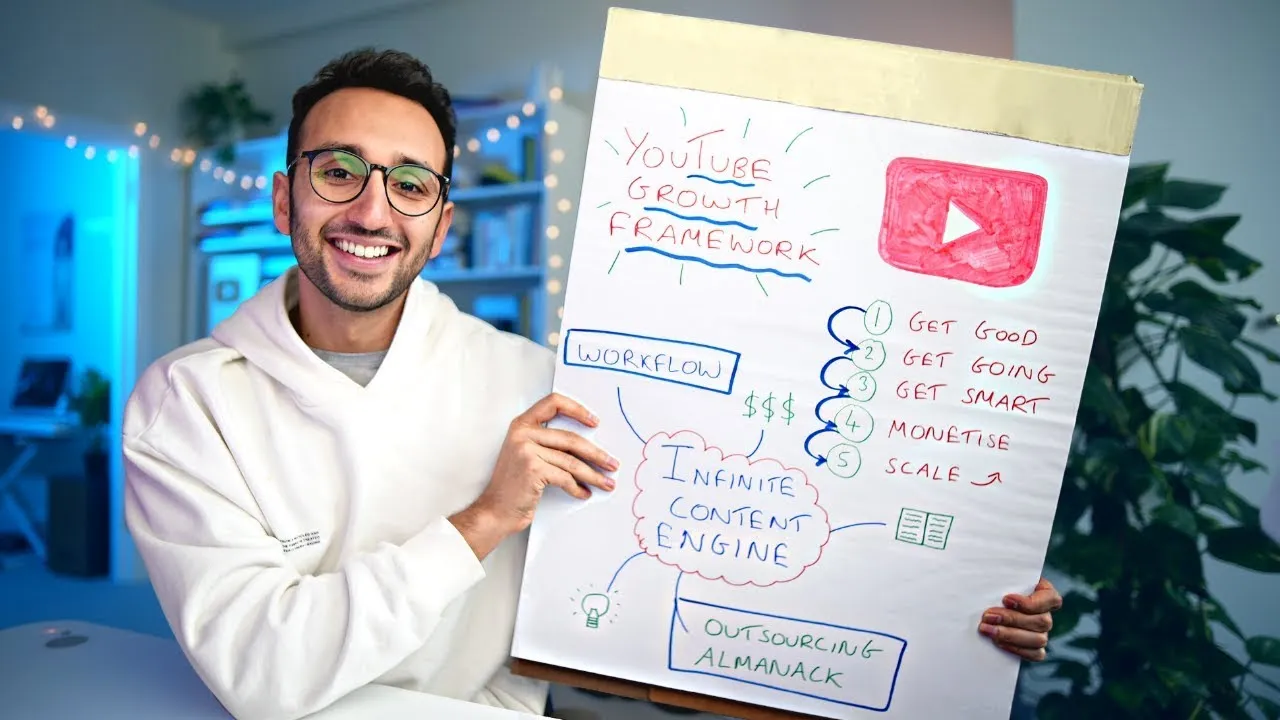 YOUTUBE
GROWTH
FRAMEWORK
1 GET GOOD
2 GET GOING
3 GET SMART
4 MONETISE
5 SCALE
WORKFLOW
$$$
INFINITE
CONTENT
ENGINE
OUTSOURCING
ALMANACK